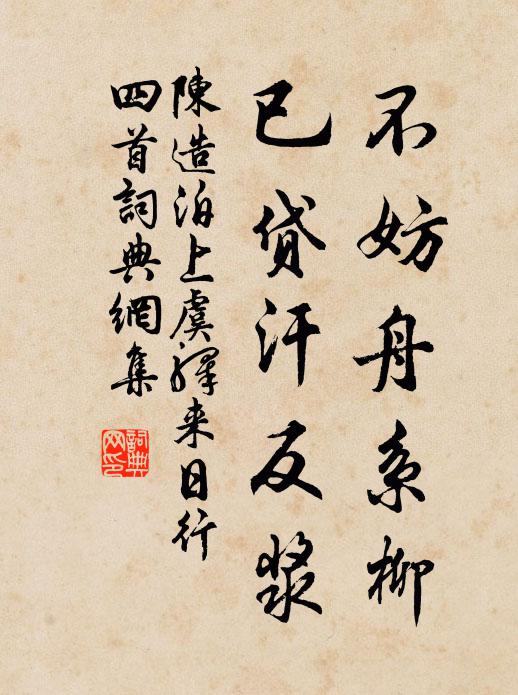 不妨舟系柳
已贷汗反浆
陳造泊上虞驛来日行
四首詞典網集
詞典
网印